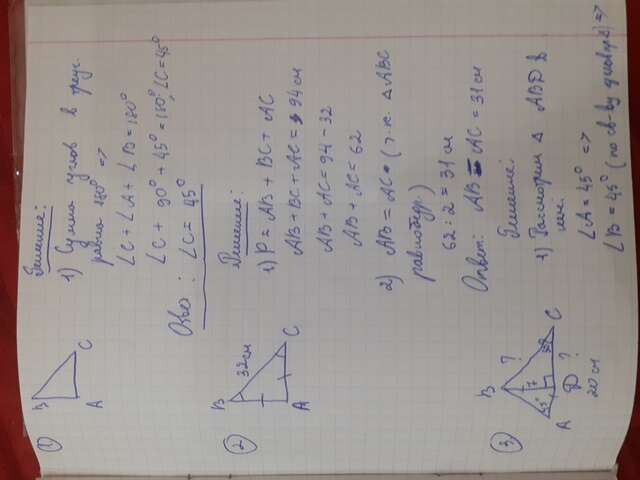 1
B
A
C
Решение:
1) Сумма углов в треуг.
равна 180° =>
∠C + ∠A + ∠B = 180°
∠C + 90° + 45° = 180°, ∠C = 45°
Ответ: ∠C = 45°
2
B
32 см
A
C
Решение:
1) P = AB + BC + AC
AB + BC + AC = 94 см
AB + AC = 94 - 32
AB + AC = 62
2) AB = AC (т.к. △ ABC
равнобедр.)
62 : 2 = 31 см
Ответ: AB = AC = 31 см
3
B
?
7
45°
A
D
C
?
20 см
Решение:
1) Рассмотрим △ ABD в
нем:
∠A = 45° =>
∠B = 45° (по св-ву) =>